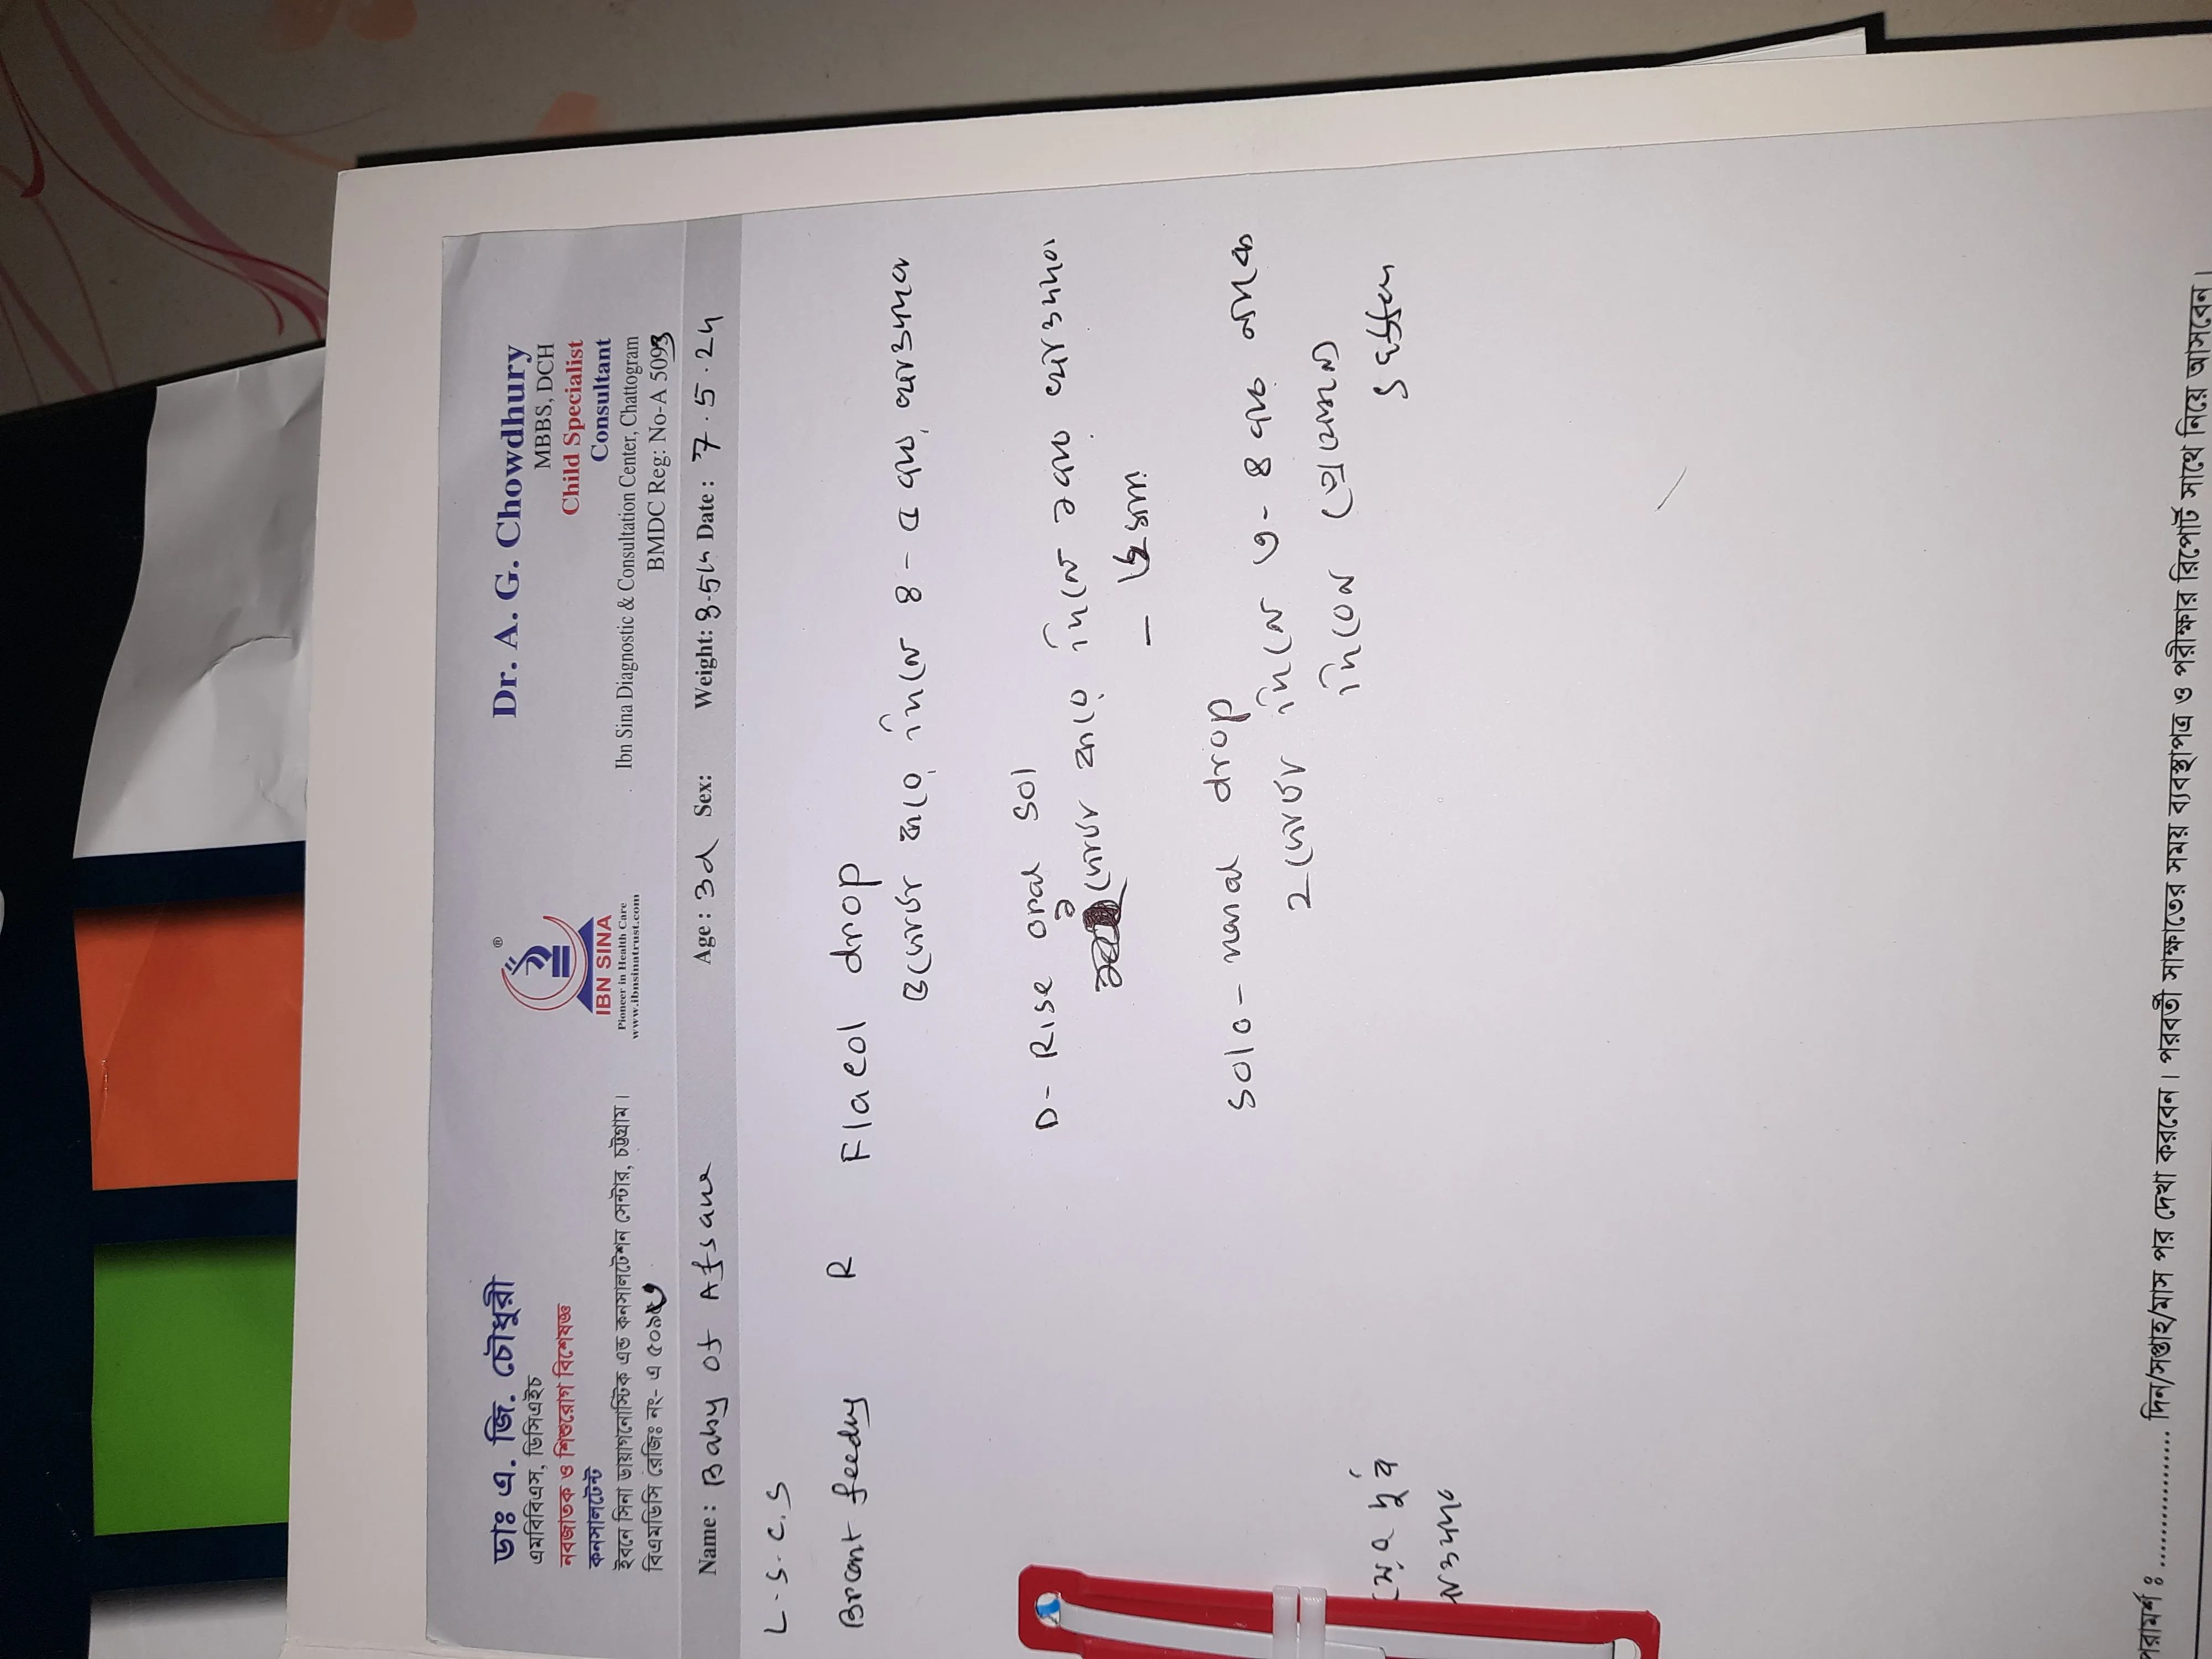 ডাঃ এ. জি. চৌধুরী
এমবিবিএস, ডিসিএইচ
নবজাতক ও শিশুরোগ বিশেষজ্ঞ
কনসালটেন্ট
ইবনে সিনা ডায়াগনোস্টিক এন্ড কনসালটেশন সেন্টার, চট্টগ্রাম।
বিএমডিসি রেজিঃ নং- এ ৫০৯৩
®
IBN SINA
Pioneer in Health Care
www.ibnsinatrust.com
Dr. A. G. Chowdhury
MBBS, DCH
Child Specialist
Consultant
Ibn Sina Diagnostic & Consultation Center, Chattogram
BMDC Reg: No-A 5093
Name: Baby of Afsana Age: 3d Sex: Weight: Date: 7.5.24
L.S.C.S
Breast feeding
R Flacol drop
ফোটা করে দিনে ৪-৫ বার খাওয়াবেন
D-Rise oral sol
ফোটা করে দিনে ১ বার খাওয়াবেন
Solo-nasal drop
2 ফোটা দিনে ৩-৪ বার নাকে
দিবেন (প্রয়োজনে)
পরামর্শ : .................. দিন/সপ্তাহ/মাস পর দেখা করবেন। পরবর্তী সাক্ষাতের সময় ব্যবস্থাপত্র ও পরীক্ষার রিপোর্ট সাথে নিয়ে আসবেন।